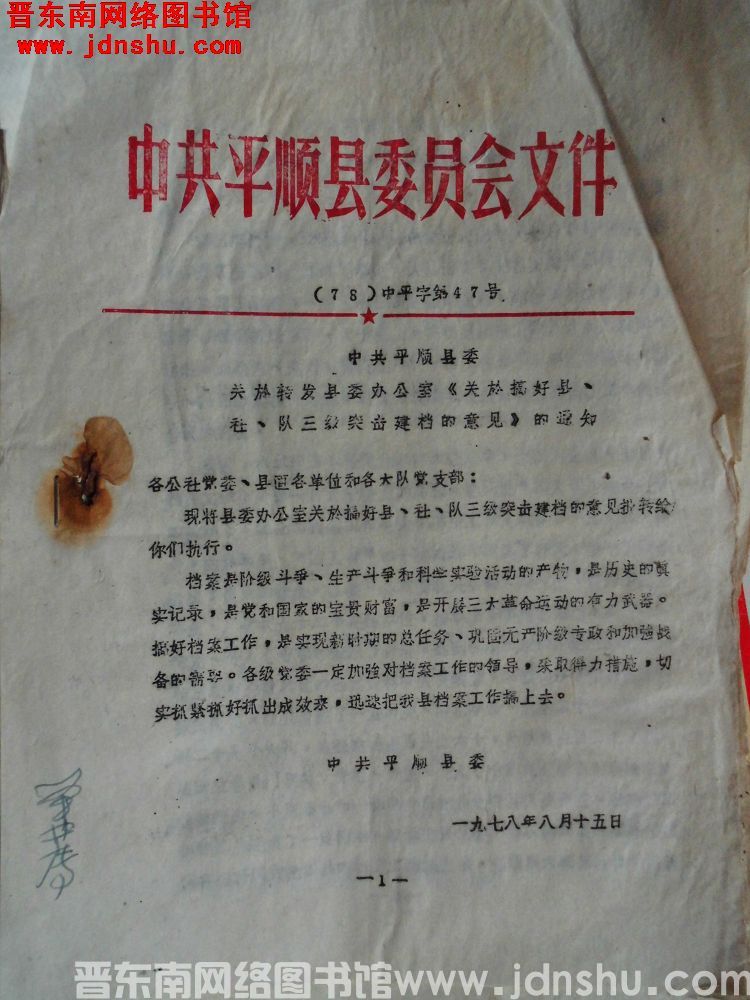 晋东南网络图书馆
www.jdnshu.com
中共平顺县委员会文件
(78)中平字第47号
中共平顺县委
关於转发县委办公室《关於搞好县、
社、队三级突击建档的意见》的通知
各公社党委、县直各单位和各大队党支部：
现将县委办公室关於搞好县、社、队三级突击建档的意见批转给
你们执行。
档案是阶级斗争、生产斗争和科学实验活动的产物，是历史的真
实记录，是党和国家的宝贵财富，是开展三大革命运动的有力武器。
搞好档案工作，是实现新时期的总任务、巩固无产阶级专政和加强战
备的需要。各级党委一定加强对档案工作的领导，采取得力措施，切
实抓紧抓好抓出成效来，迅速把我县档案工作搞上去。
中共平顺县委
一九七八年八月十五日
—1—
晋东南网络图书馆www.jdnshu.com